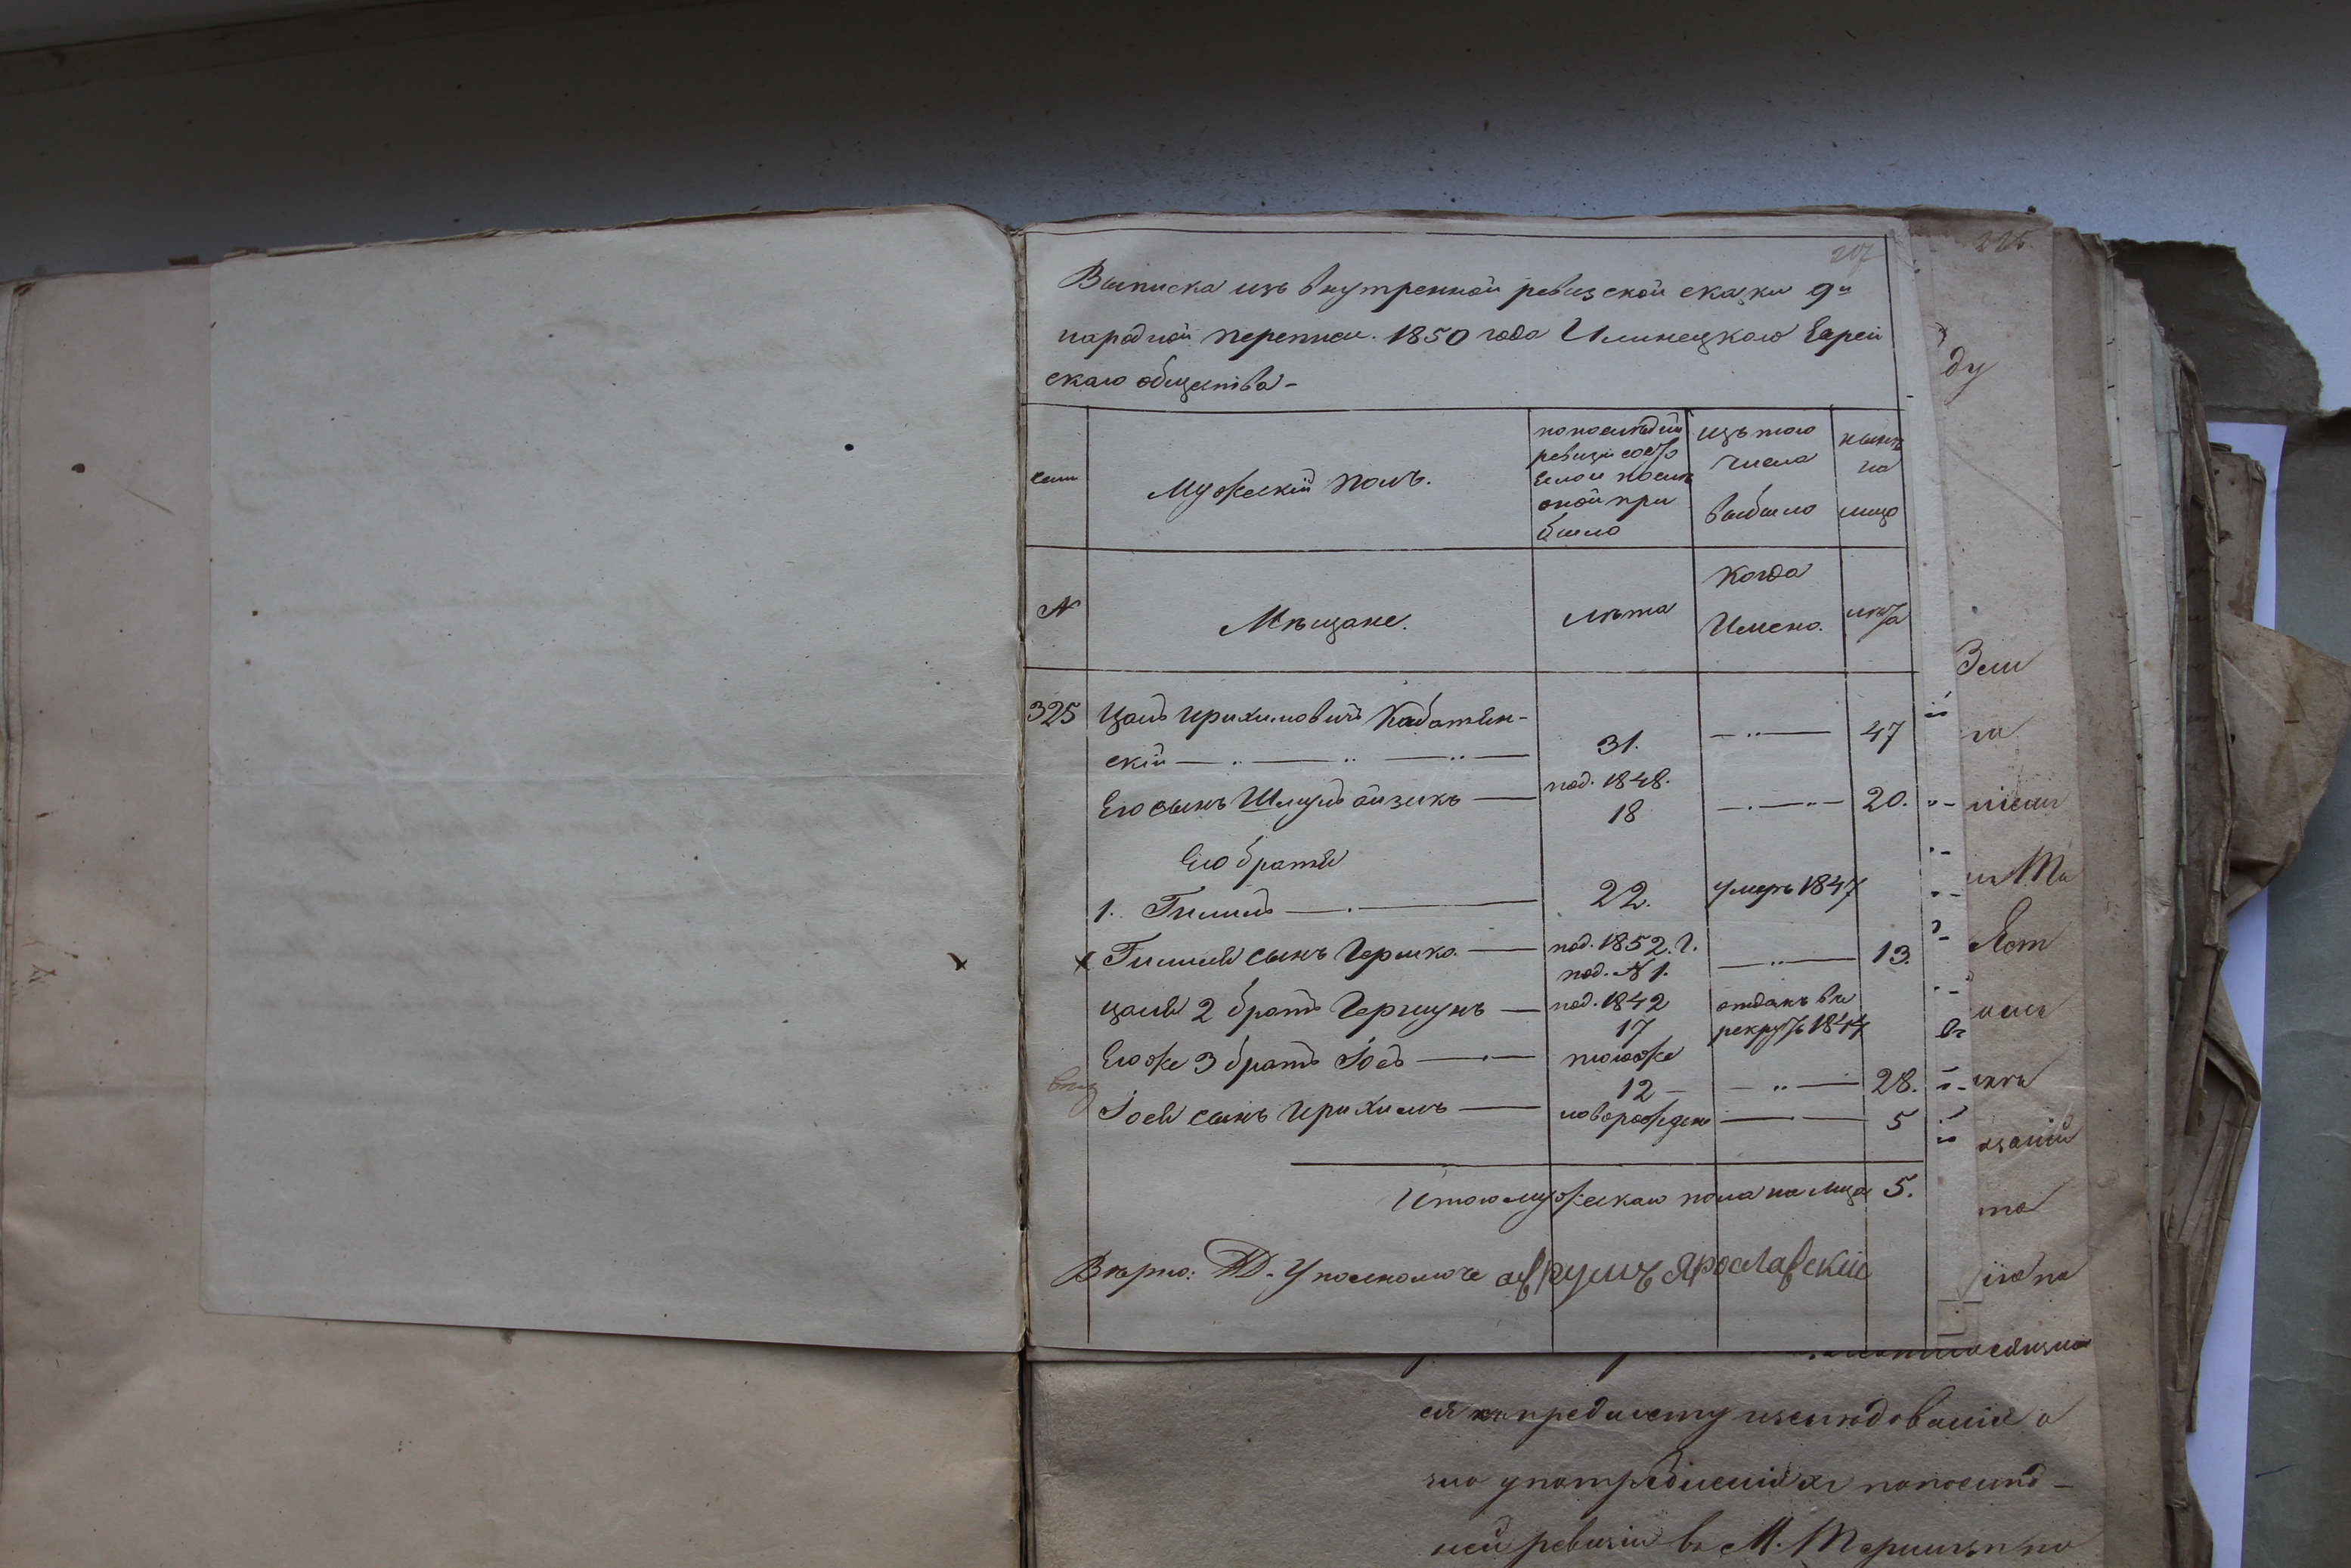 207
Выписка изъ внутренной ревизской сказки 9й
народной переписи 1850 года Илинецкаго Еврей
скаго общества -
семи
Мужескій полъ.
по последней
ревизіи состо
яло и после
оной при
было
изъ того
числа
выбыло
ныне
на
лицо
№
Мѣщане.
лѣта
Когда
Имено.
лѣта
325 Цаль Ирихимовичъ Кабатян-
скій 31. 47
Его сынъ Шмуль Айзикъ под. 1848. 18 20.
Его братья
1. Гилель 22. умеръ 1847
х Гилеля сынъ Гершко под. 1852. г. под. № 1. 13.
Цаля 2 братъ Гершунъ под. 1842 17 отданъ въ рекруты 1844
Его же 3 братъ Іосъ тогоже 12 - 28.
Іося сынъ Ирихимъ новорожден 5
Итого мужескаго пола на лицо 5.
Вѣрно: Уполномоче Аврумъ Ярославскій
225.
ду
предмету изследованія о
употребленіях по послед-
ней ревизіи въ М.